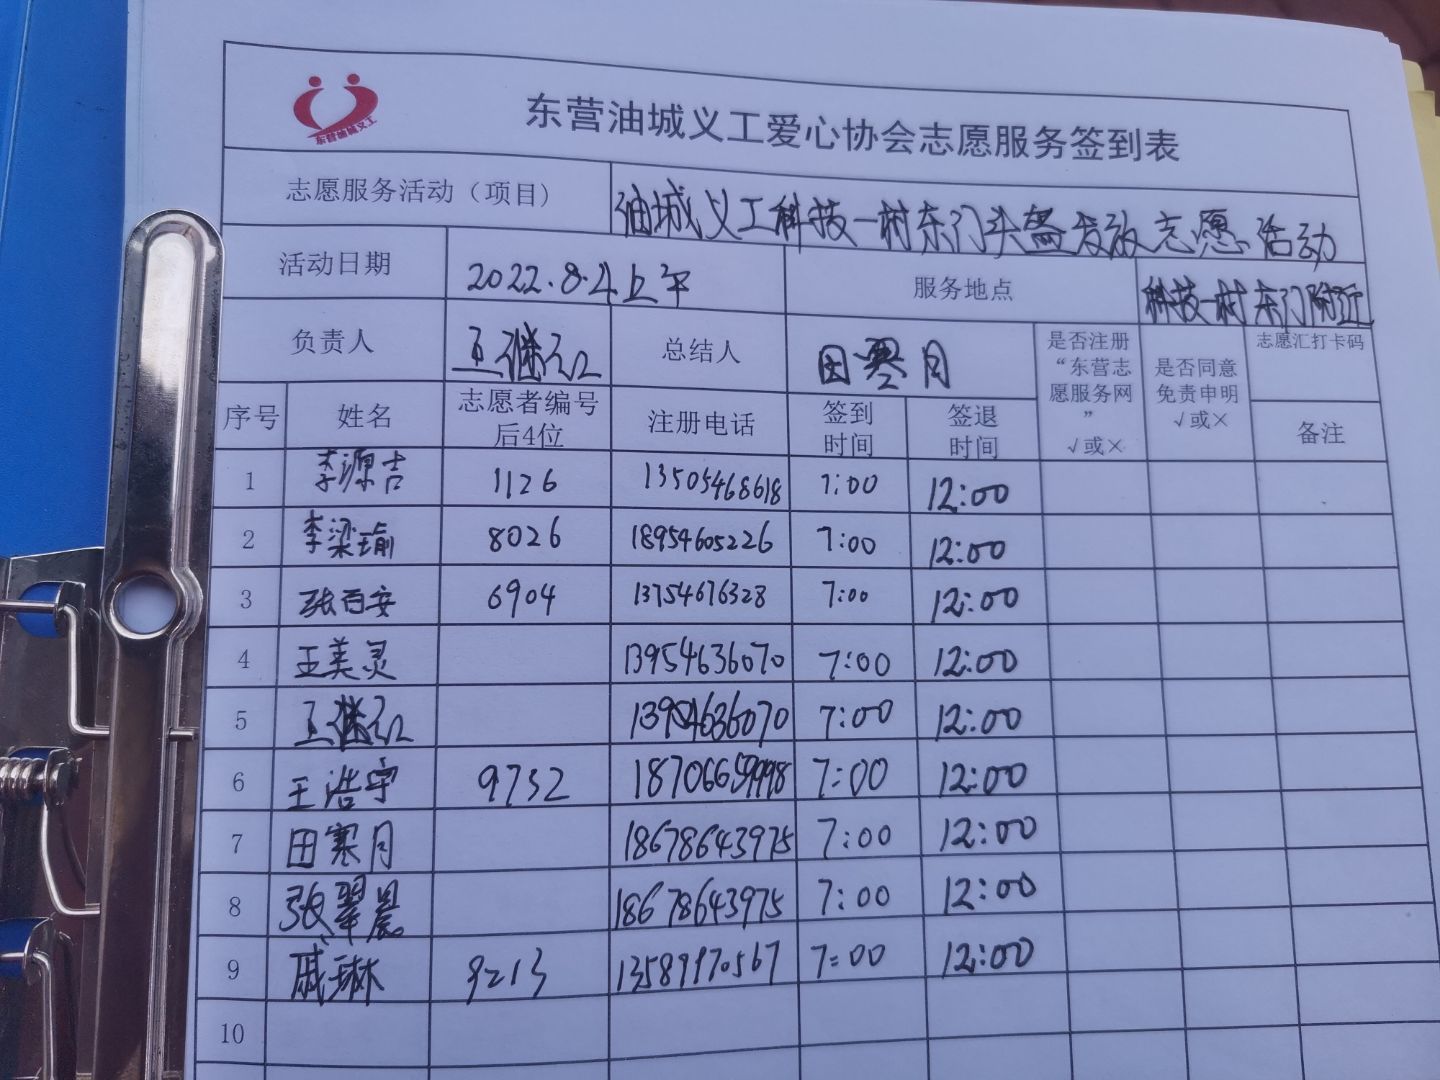 东营油城义工
东营油城义工爱心协会志愿服务签到表
志愿服务活动（项目） 油城义工科技一村东门头盔发放志愿活动
活动日期 2022.8.4上午 服务地点 科技一村东门附近
负责人 王继红 总结人 田寒月 是否注册“东营志愿服务网” √或× 是否同意免责申明 √或× 志愿汇打卡码
序号 姓名 志愿者编号后4位 注册电话 签到时间 签退时间 备注
1 李源吉 1126 13505468618 7:00 12:00
2 李梁瑜 8026 18954605226 7:00 12:00
3 张百安 6904 13754676328 7:00 12:00
4 王美灵 13954636070 7:00 12:00
5 王继红 13954636070 7:00 12:00
6 王浩宇 9732 18706659998 7:00 12:00
7 田寒月 18678643975 7:00 12:00
8 张翠晨 18678643975 7:00 12:00
9 戚琳 9213 13589970567 7:00 12:00
10